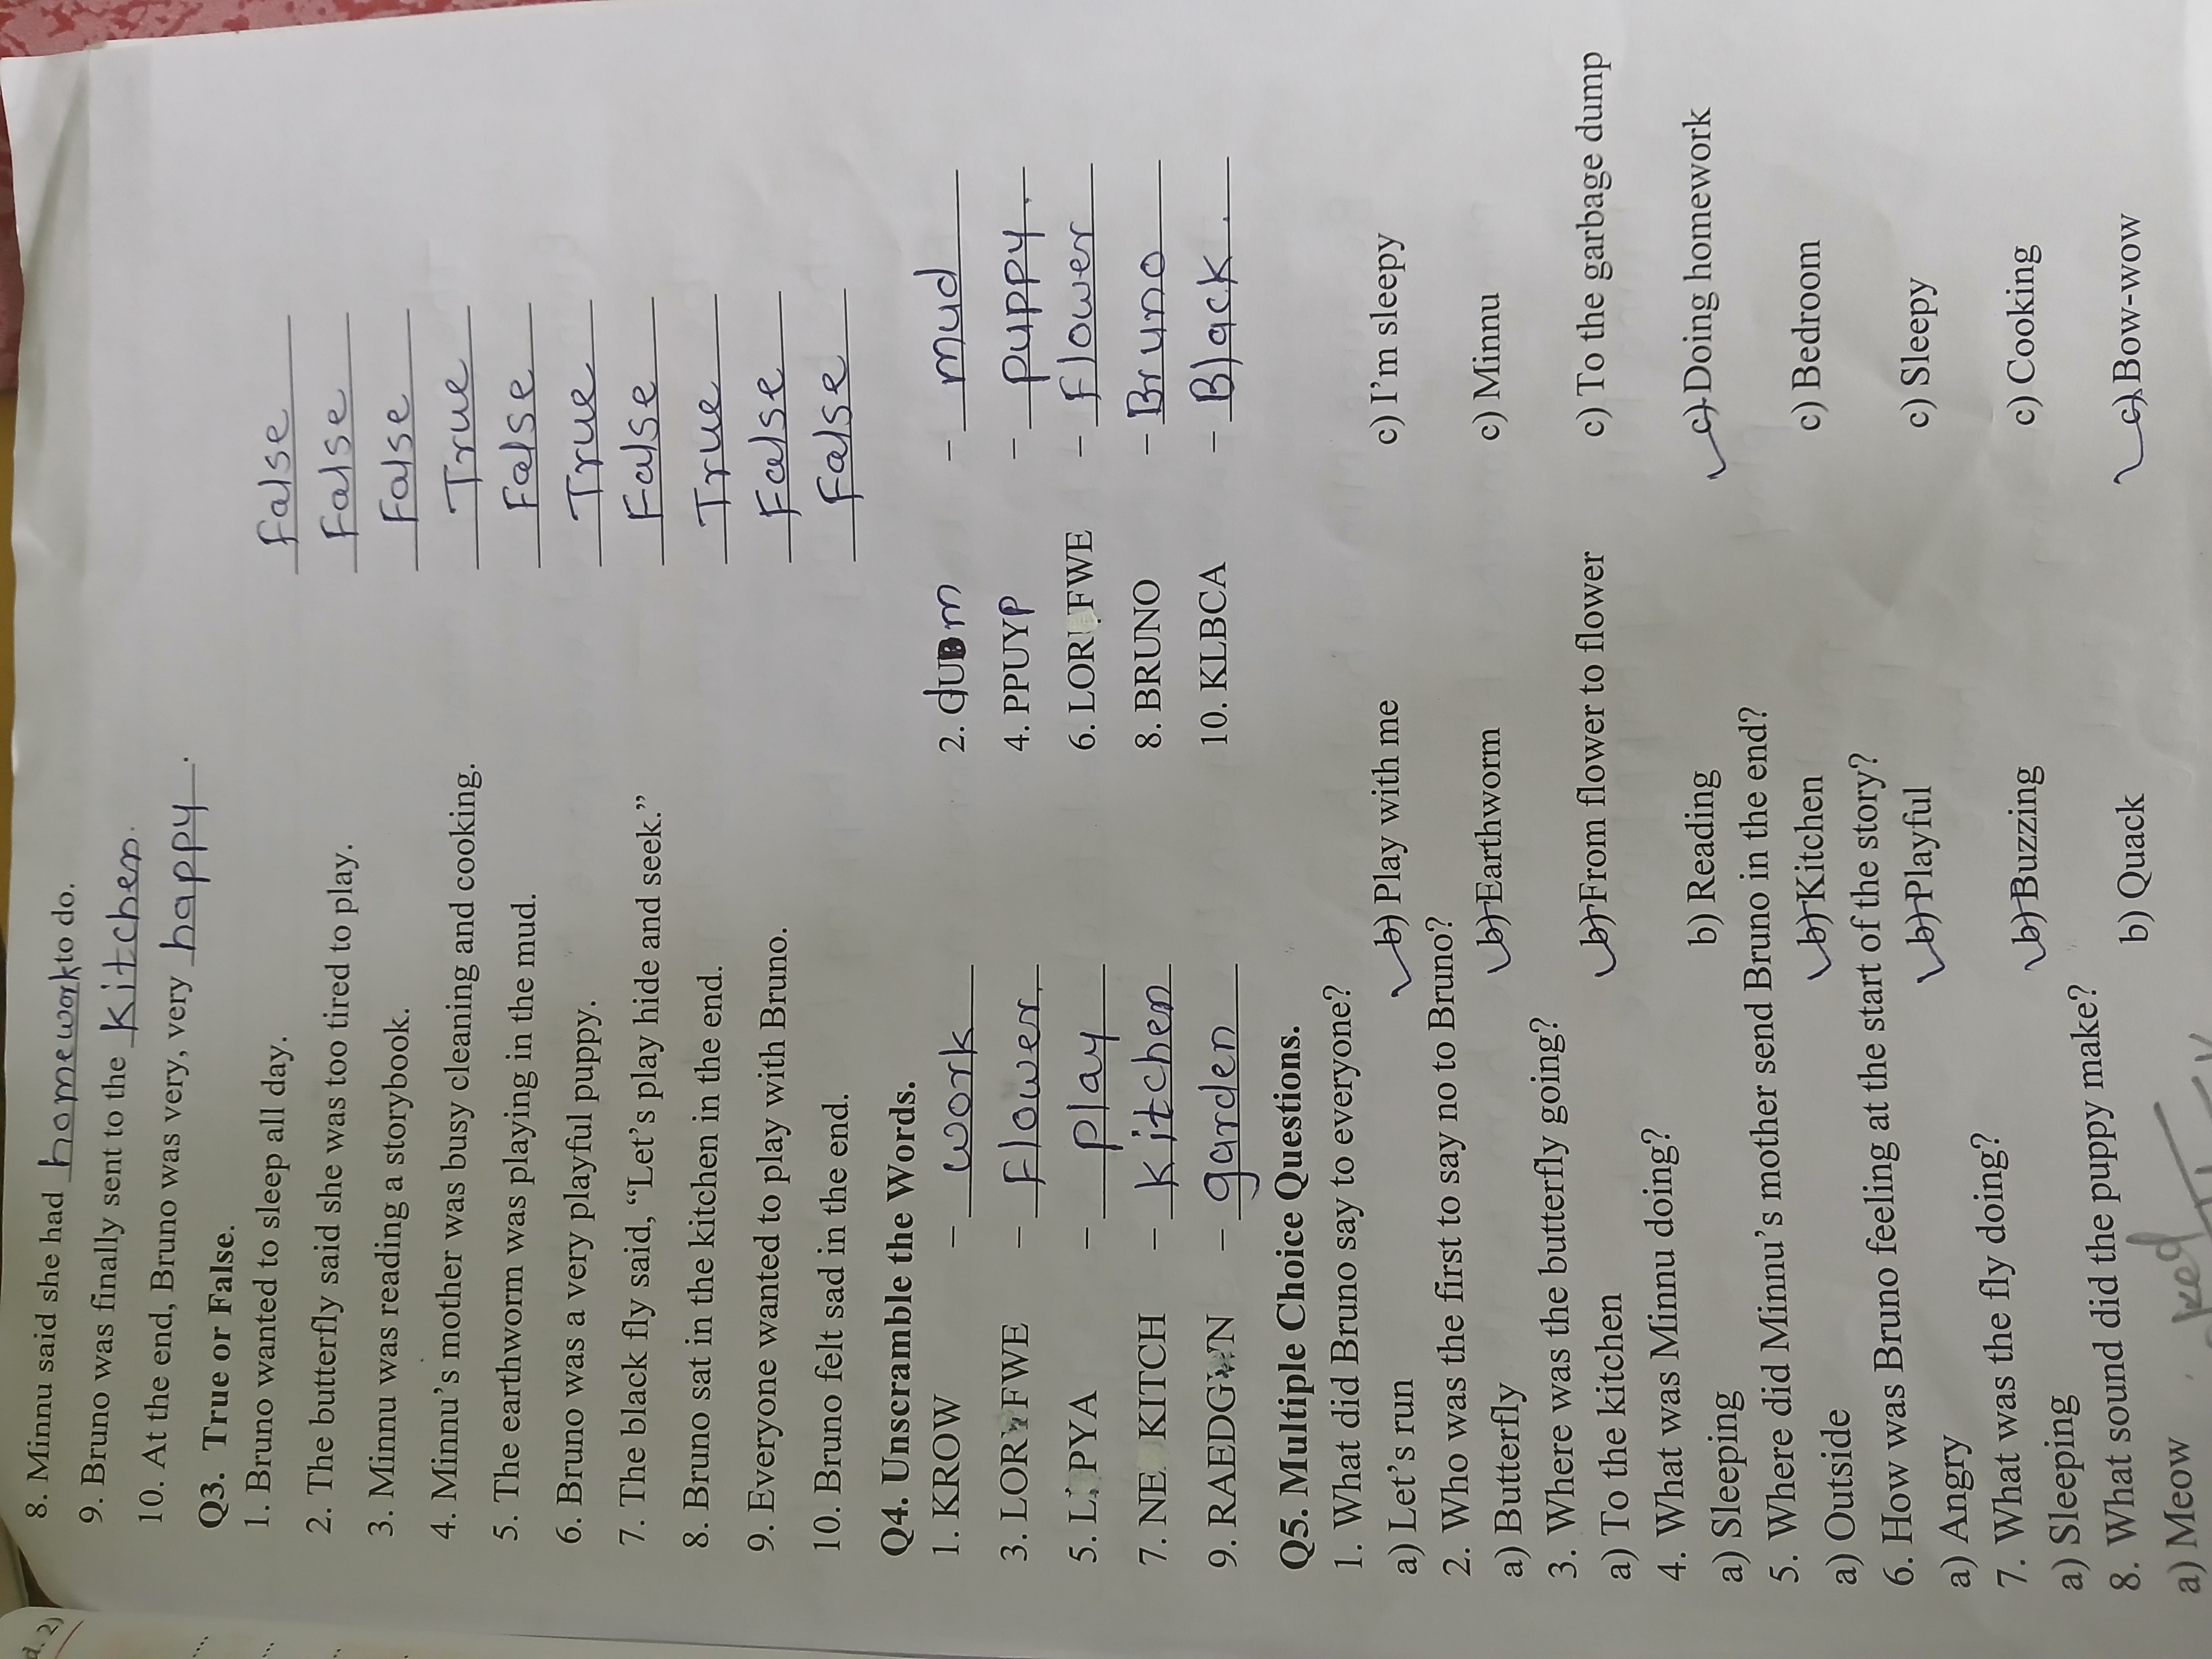 8. Minnu said she had homework to do.
9. Bruno was finally sent to the kitchen.
10. At the end, Bruno was very, very happy.
Q3. True or False.
1. Bruno wanted to sleep all day. False
2. The butterfly said she was too tired to play. False
3. Minnu was reading a storybook. False
4. Minnu's mother was busy cleaning and cooking. True
5. The earthworm was playing in the mud. False
6. Bruno was a very playful puppy. True
7. The black fly said, “Let's play hide and seek.” False
8. Bruno sat in the kitchen in the end. True
9. Everyone wanted to play with Bruno. False
10. Bruno felt sad in the end. False
Q4. Unscramble the Words.
1. KROW – work 2. dum – mud
3. LOR FWE – Flower 4. PPUYP – puppy.
5. L PYA – play 6. LOR FWE – Flower
7. NE KITCH – kitchen 8. BRUNO – Bruno
9. RAEDG N – garden 10. KLBCA – Black.
Q5. Multiple Choice Questions.
1. What did Bruno say to everyone?
a) Let's run b) Play with me c) I'm sleepy
2. Who was the first to say no to Bruno?
a) Butterfly b) Earthworm c) Minnu
3. Where was the butterfly going?
a) To the kitchen b) From flower to flower c) To the garbage dump
4. What was Minnu doing?
a) Sleeping b) Reading c) Doing homework
5. Where did Minnu's mother send Bruno in the end?
a) Outside b) Kitchen c) Bedroom
6. How was Bruno feeling at the start of the story?
a) Angry b) Playful c) Sleepy
7. What was the fly doing?
a) Sleeping b) Buzzing c) Cooking
8. What sound did the puppy make?
a) Meow b) Quack c) Bow-wow